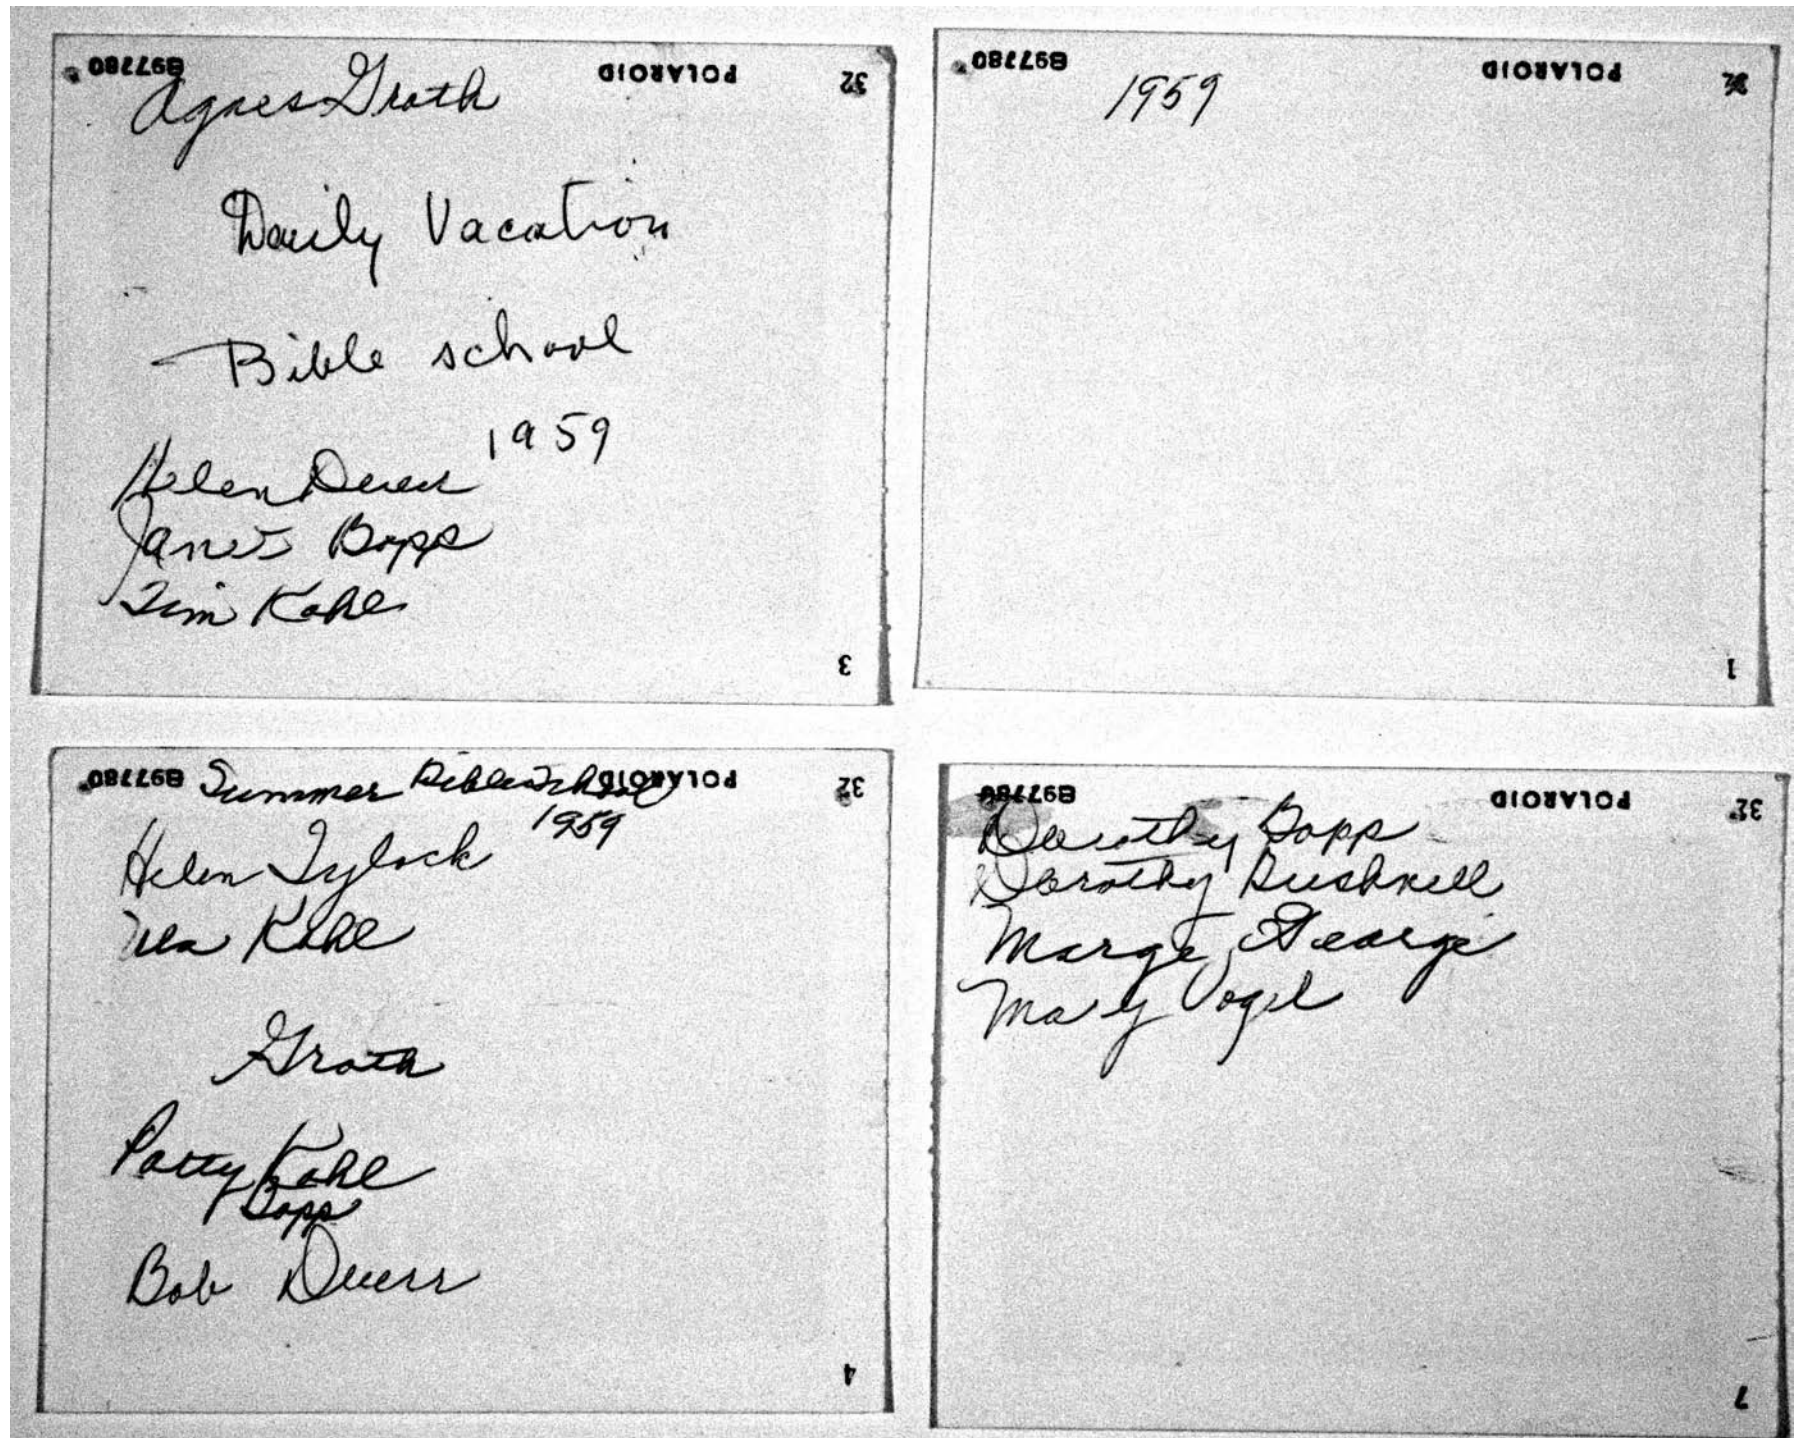 897780 POLAROID 32
Agnes Groth
Daily Vacation
Bible school
1959
Helen Duerr
Janet Bopp
Tim Kohl
3
897780 POLAROID 32
1959
1
897780 POLAROID 32
Summer Bible School
1959
Helen Tylock
Kohl
Groth
Patty Kohl
Bopp
Bob Duerr
4
897780 POLAROID 32
Dorothy Bopp
Dorothy Bushnell
Marge George
Mary Vogel
7